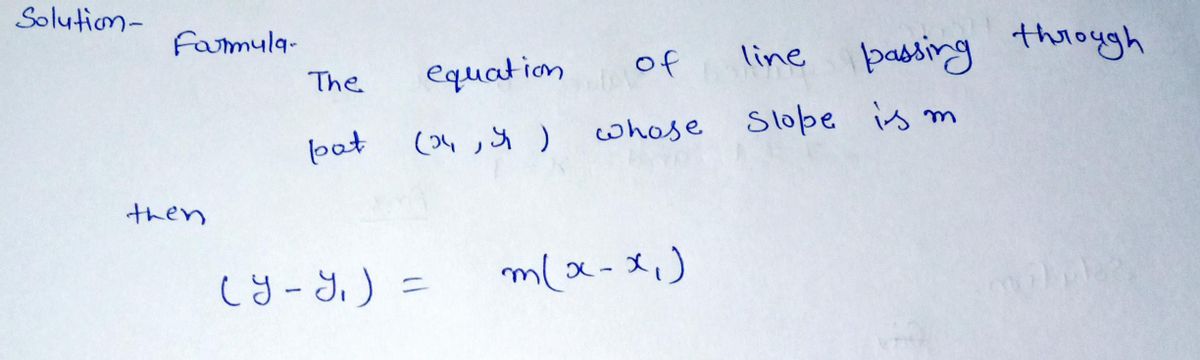 Solution-
Formula-
The equation of line passing through
pot (x₁, y₁) whose slope is m
then
(y - y₁) = m(x - x₁)